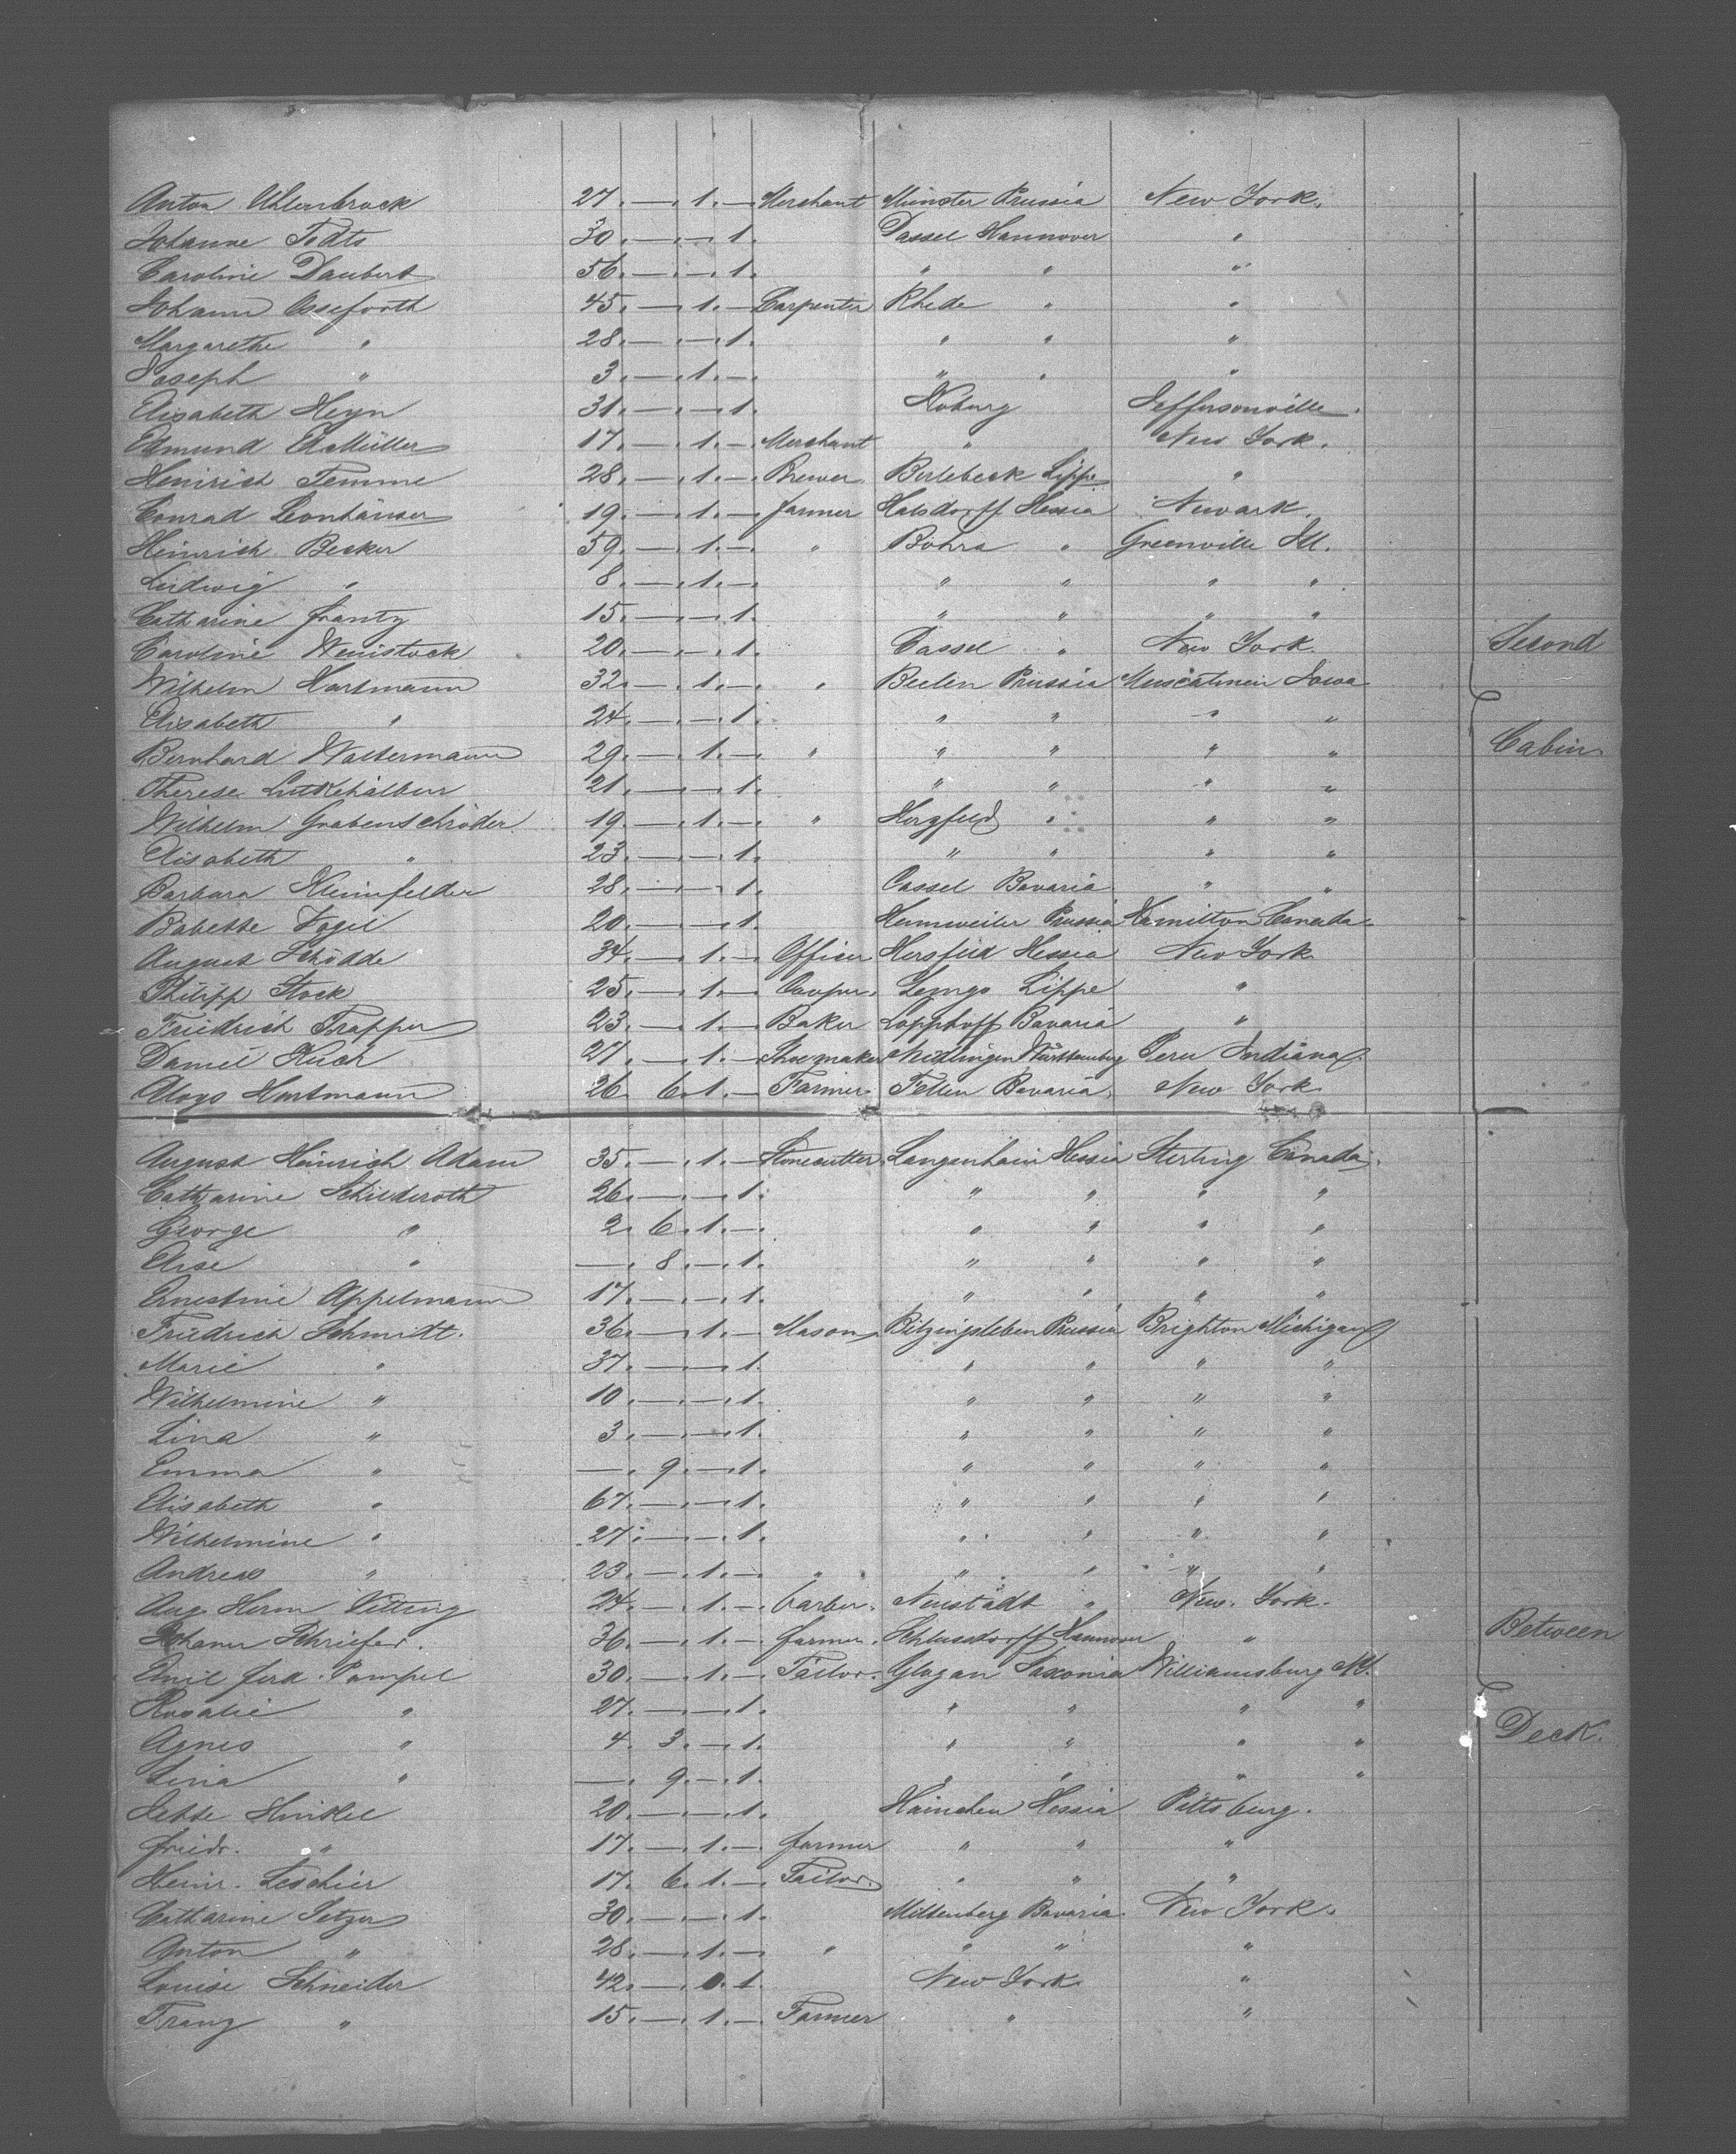 Anton Uhlenbrock 27. — 1. — Merchant Münster Prussia New York.
Johanne Todts 30. — — 1. Dassel Hannover "
Caroline Daubert 56. — — 1. " " "
Johann Osseforth 45. — 1. — Carpenter Rhede " "
Margarethe " 28. — — 1. " " "
Joseph " 3. — 1. — " " "
Elisabeth Heyn 31. — — 1. Koburg Jeffersonville.
Edmund 17. — 1. — Merchant " New York.
Heinrich Temme 28. — 1. — Brewer Berlebeck Lippe "
Conrad Leonhäuser 19. — 1. — farmer Halsdorff Hessia Newark.
Heinrich Becker 59. — 1. — " Bohra " Greenville Ill.
Ludwig " 8. — 1. — " " " "
Catharine frantz 15. — — 1. " " " "
Caroline Wenistock 20. — — 1. Cassel " New York. Second
Wilhelm Hartmann 32. — 1. — " Beelen Prussia Muscatinein Iowa
Elisabeth " 24. — — 1. " " " "
Bernhard Woltermann 29. — 1. — " " " " " Cabin
Therese 21. — — 1. " " " "
Wilhelm Grabenschröder. 19. — 1. — " Herzfeld " " "
Elisabeth " 23. — — 1. " " " "
Barbara Kleinfelder 28. — — 1. Cassel Bavaria " "
Babette Vogel 20. — — 1. Prussia Hamilton Canada.
August Schödde 34. — 1. — Officer Hersfeld Hessia New York
Philipp Stock 25. — 1. — Cooper. Lemgo Lippe "
Friedrich Trapper 23. — 1. — Baker Lopphoff Bavaria "
Daniel Kuch 27. — 1. — Shoemaker Württemberg Peru Indiana.
Aloys Hartmann 26. 6. 1. — Farmer. Fellen Bavaria. New York
August Heinrich Adam 35. — 1. — Stonecutter Langenhain Hessia Sterling Canada.
Catharine Schilderoth 26. — — 1. " " " "
George " 2. 6. 1. — " " " "
Elise " — 8. — 1. " " " "
Ernestine Appelmann 17. — — 1. " " " "
Friedrich Schmidt. 36. — 1. — Mason Bilzingsleben Prussia Brighton Michigan
Marie " 37. — — 1. " " " "
Wilhelmine " 10. — — 1. " " " "
Lina " 3. — — 1. " " " "
Emma " — 9. — 1. " " " "
Elisabeth " 67. — — 1. " " " "
Wilhelmine " 27. — — 1. " " " "
Andreas " 23. — 1. — " " " " "
Aug. Herm Vitting 24. — 1. — barber. Neustadt " New. York.
Johann Schriefer. 36. — 1. — farmer. Hannover " Between
Emil ferd. Pampel 30. — 1. — Tailor. Glogau Saxonia Williamsburg
Rosalie " 27. — — 1. " " " "
Agnes " 4. 3. — 1. " " " " Deck.
Lina " — 9. — 1. " " " "
Jette Hinkel 20. — — 1. Hainchen Hessia Pittsburg.
friedr. " 17. — 1. — farmer " " "
Heinr. Leschier 17. 6. 1. — Tailor. " " "
Catharine Setzer 30. — — 1. Miltenberg Bavaria. New York.
Anton " 28. — 1. — " " " "
Louise Schneider 42. — 0. 1. New York. "
Franz " 15. — 1. — Farmer " "